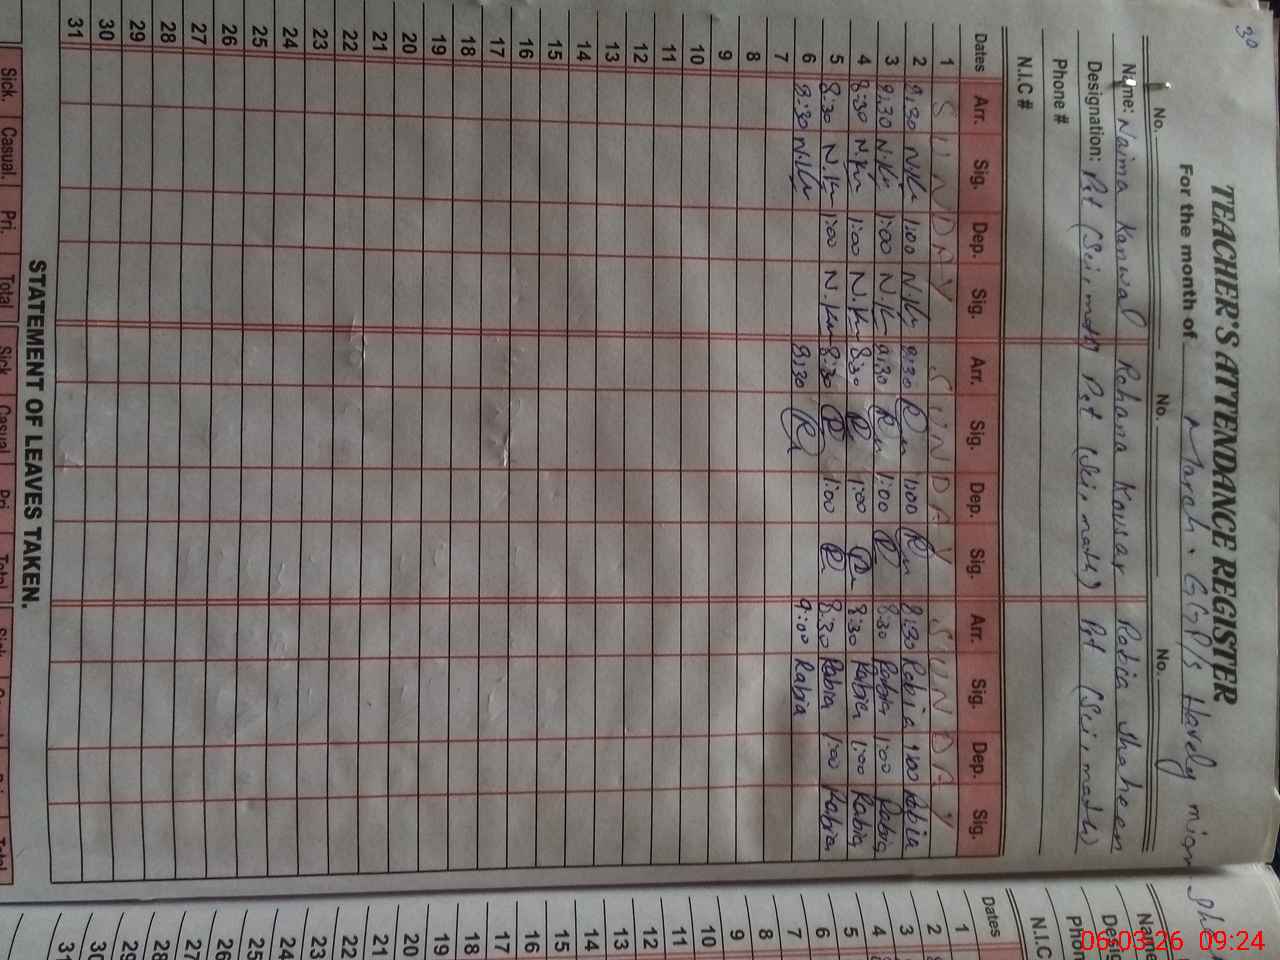 30
TEACHER'S ATTENDANCE REGISTER
For the month of March. GGP/S Havely mian
No. No. No.
Name: Naima Kanwal Rehana Kousar Rabia Shaheen
Designation: Pst (Sci, math) Pst (Sci, math) Pst (Sci, math)
Phone #
N.I.C #
Dates Arr. Sig. Dep. Sig. Arr. Sig. Dep. Sig. Arr. Sig. Dep. Sig.
1 SUNDAY SUNDAY SUNDAY
2 8:30 N.Kn 1:00 N.Kn 8:30 Rn 1:00 Rn 8:30 Rabia 1:00 Rabia
3 8:30 N.Kn 1:00 N.Kn 8:30 Rn 1:00 R 8:30 Rabia 1:00 Rabia
4 8:30 N.Kn 1:00 N.Kn 8:30 R 1:00 Rn 8:30 Rabia 1:00 Rabia
5 8:30 N.Kn 1:00 N.Kn 8:30 R 1:00 R 8:30 Rabia 1:00 Rabia
6 8:30 N.Kn 8:30 Rn 9:00 Rabia
7
8
9
10
11
12
13
14
15
16
17
18
19
20
21
22
23
24
25
26
27
28
29
30
31
STATEMENT OF LEAVES TAKEN.
Sick. Casual. Pri. Total Sick Casual Pri Total
Name
N.I.C
Dates
1
2
3
4
5
6
7
8
9
10
11
12
13
14
15
16
17
18
19
20
21
22
23
24
25
26
27
28
29
30
31
06-03-26 09:24